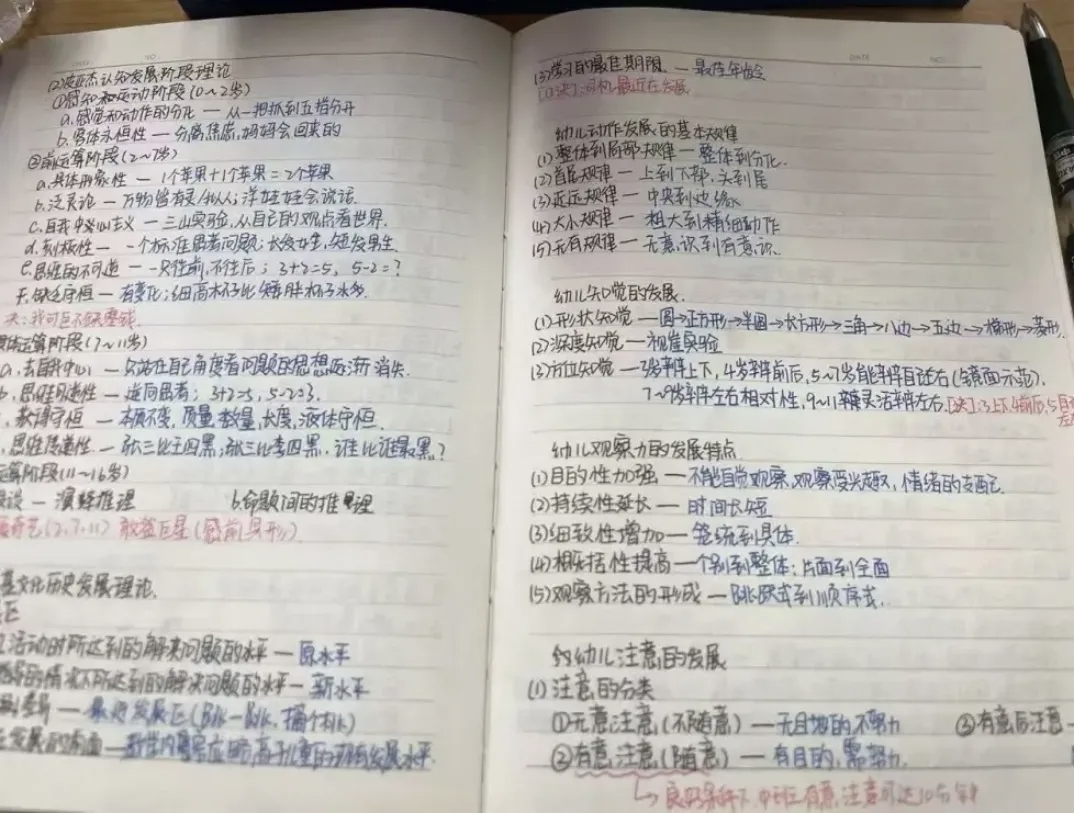 (2)皮亚杰认知发展阶段理论
①感知和运动阶段(0~2岁)
a.感觉和动作的分化 — 从一把抓到五指分开
b.客体永恒性 — 分离焦虑,妈妈会回来的
②前运算阶段(2~7岁)
a.具体形象性 — 1个苹果+1个苹果=2个苹果
b.泛灵论 — 万物皆有灵/拟人;洋娃娃会说话.
c.自我中心主义 — 三山实验,从自己的观点看世界.
d.刻板性 — 一个标准思考问题;长发女生,短发男生.
e.思维的不可逆 — 只往前,不往后;3+2=5, 5-2=?
f.缺乏守恒 — 有变化;细高杯子比矮胖杯子水多.
决:我可巨不缺零钱.
运算阶段(7~11岁)
a.去自我中心 — 只站在自己角度看问题的思想逐渐消失.
b.思维可逆性 — 逆向思考;3+2=5,5-2=3.
获得守恒 — 本质不变,质量,数量,长度,液体守恒.
思维传递性 — 张三比王四黑;张三比李四黑,谁比谁最黑?
运算阶段(11~16岁)
— 演绎推理 b.命题间的推理
(2,7,11) 敢盗巨星(感前具形)
基文化历史发展理论.
活动时所达到的解决问题的水平 — 原水平
的情况下所达到的解决问题的水平 — 新水平
— 最近发展区(跳一跳,摘个桃)
发展的前面 — 教学内容应略高于儿童的现有发展水平.
(3)学习的最佳期限. — 最佳年龄
[口诀]:河构,最近在发展
幼儿动作发展的基本规律
(1)整体到局部规律 — 整体到分化.
(2)首尾规律 — 上到下部,头到尾
(3)近远规律 — 中央到边缘
(4)大小规律 — 粗大到精细动作
(5)无有规律 — 无意识到有意识.
幼儿知觉的发展.
(1)形状知觉 — 圆→正方形→半圆→长方形→三角→八边→五边→梯形→菱形.
(2)深度知觉 — 视崖实验
(3)方位知觉 — 3岁辨上下,4岁辨前后,5~7岁能辨自己左右(镜面示范).
7~9岁辨左右相对性,9~11辨灵活辨左右.[决]:3上下,4前后,5自
幼儿观察力的发展特点
(1)目的性加强 — 不能自觉观察,观察受兴趣,情绪的支配.
(2)持续性延长 — 时间长短
(3)细致性增加 — 笼统到具体.
(4)概括性提高 — 个别到整体;片面到全面
(5)观察方法的形成 — 跳跃式到顺序式.
幼儿注意的发展
(1)注意的分类
①无意注意(不随意) — 无目的的不努力 ③有意后注意 —
②有意注意(随意) — 有目的,需努力.
↳良好条件下,中班有意注意可达10分钟